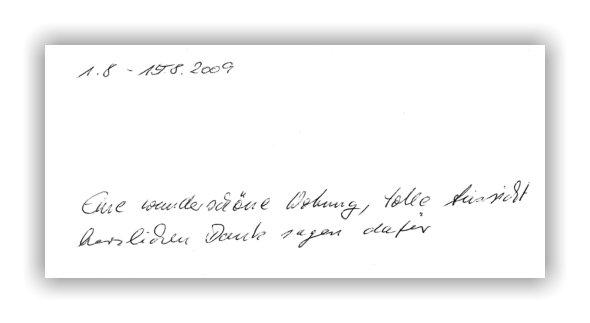 1.8 - 15.8.2009
Eine wunderschöne Wohnung, tolle Aussicht
herzlichen Dank sagen dafür